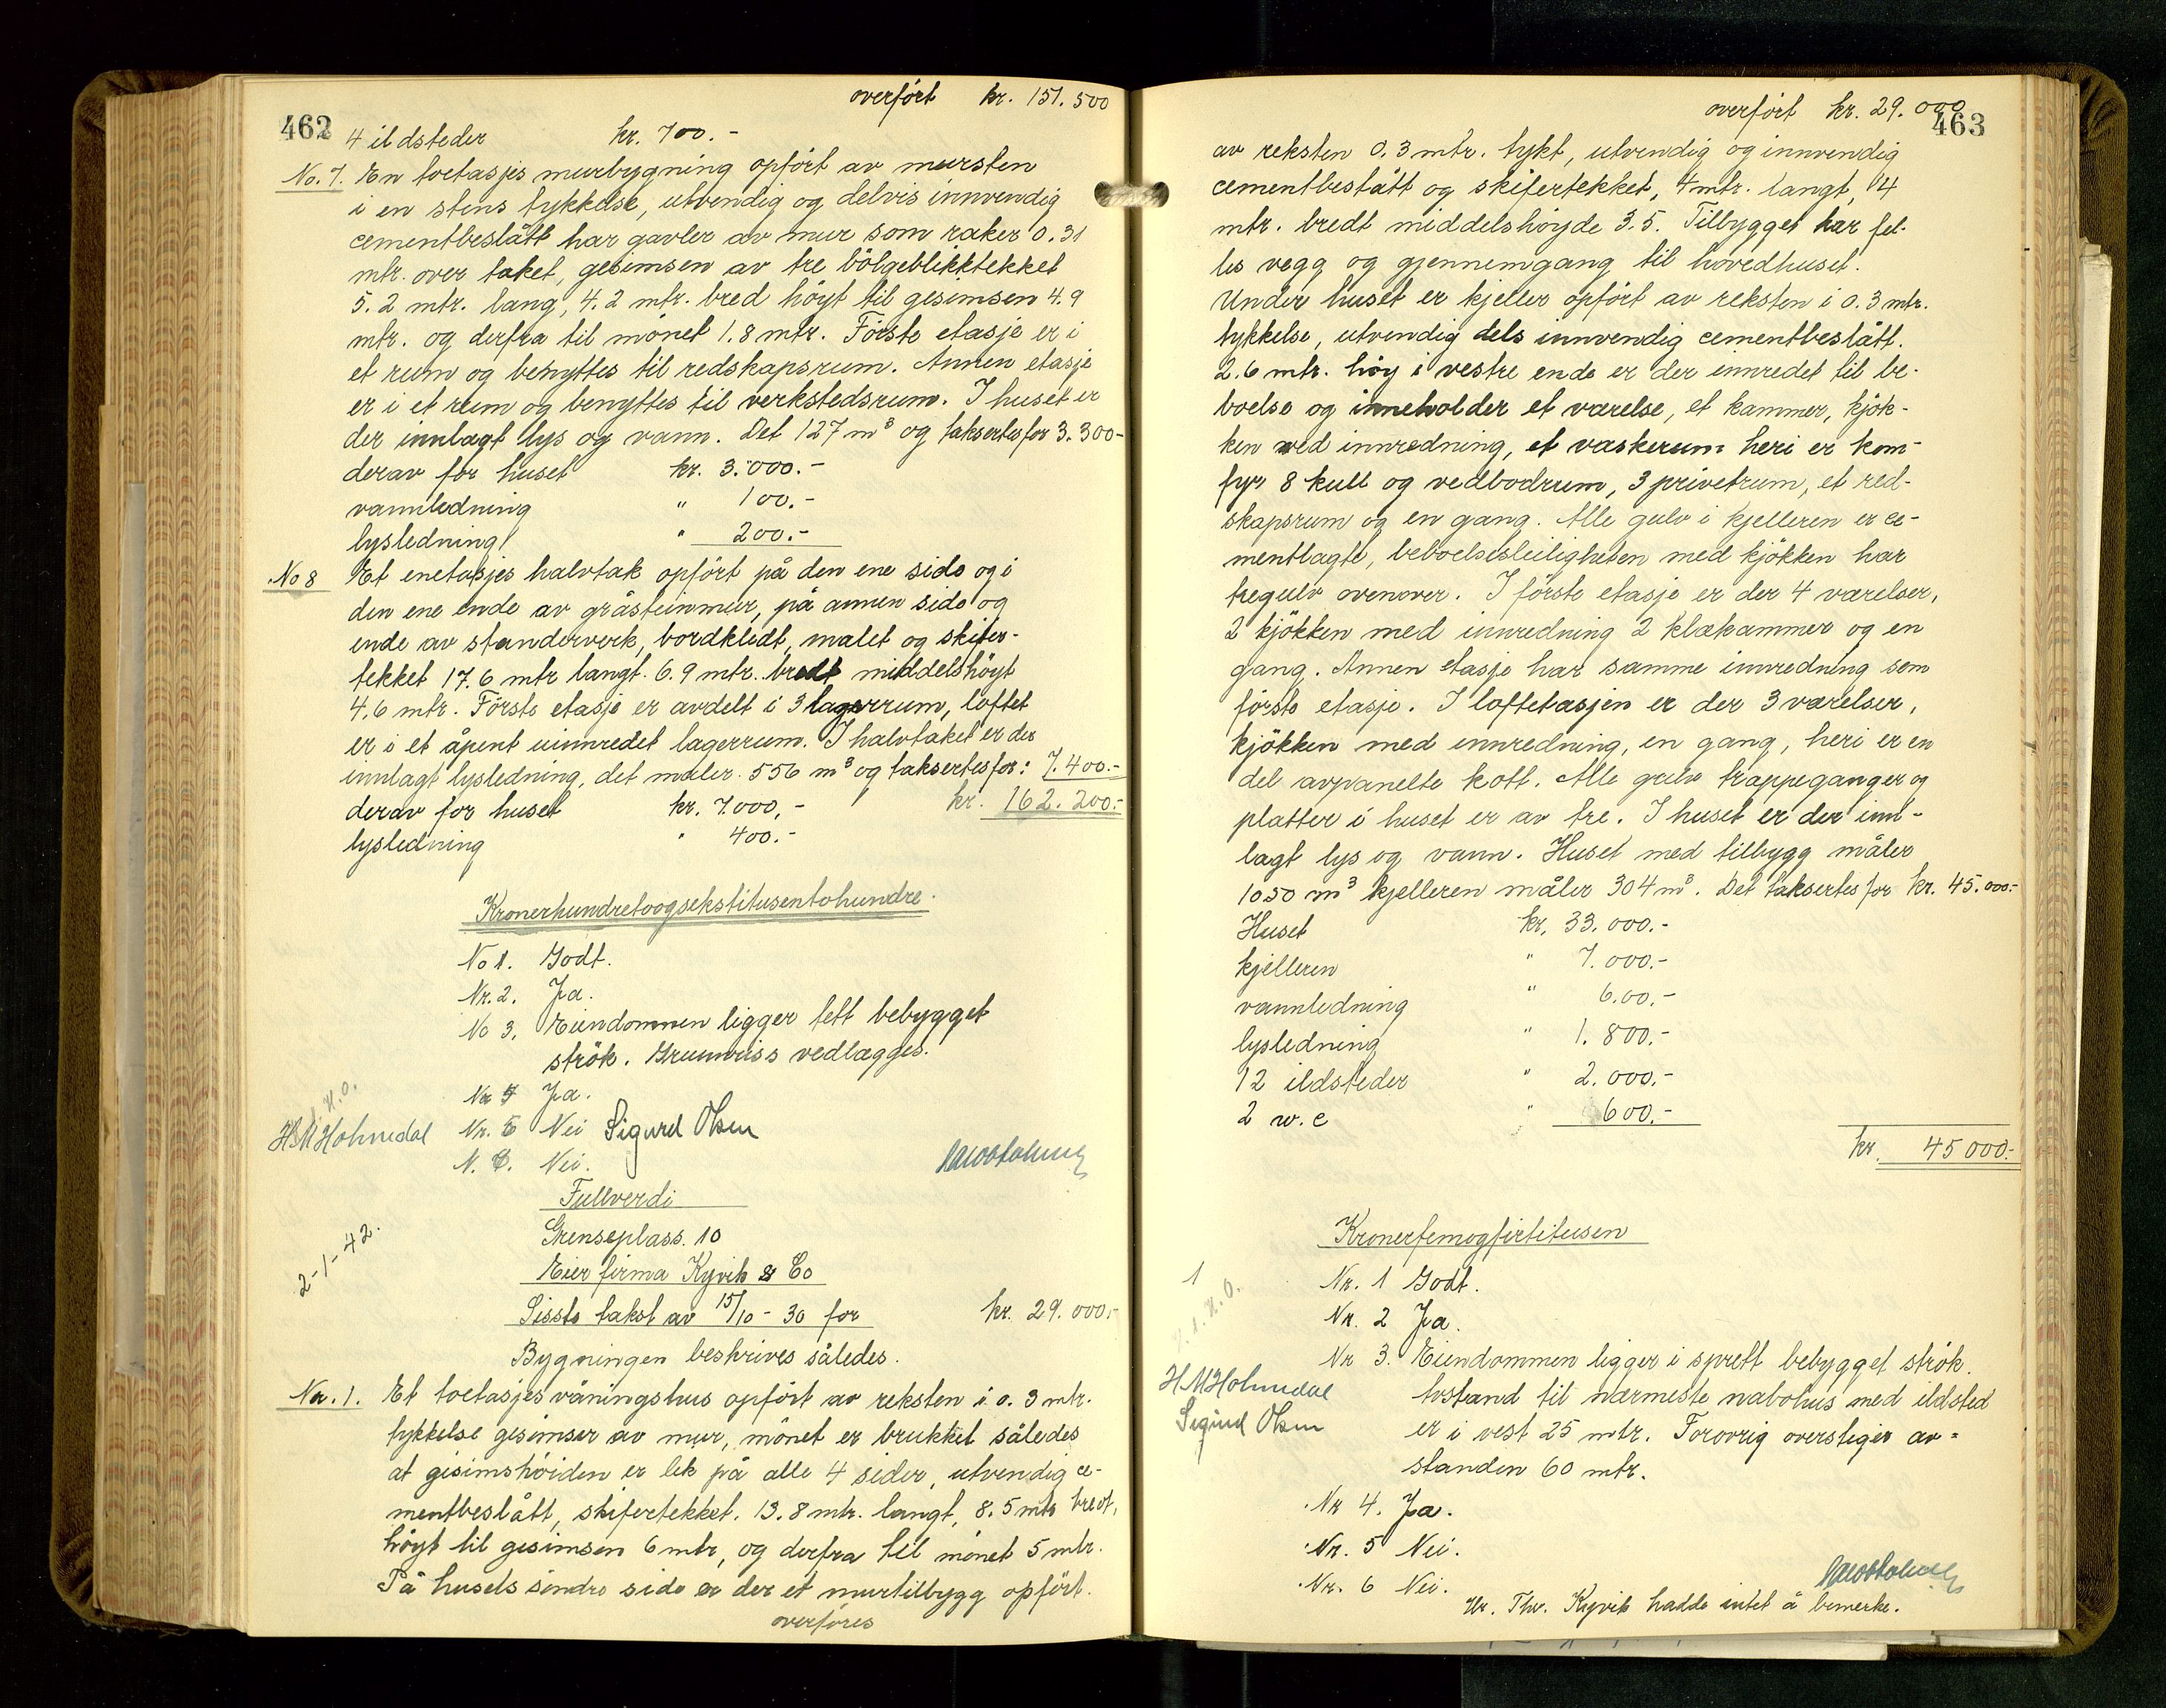 462
overført kr. 151.500
4 ildsteder kr. 700.-
No. 7. En toetasjes murbygning opført av mursten
i en stens tykkelse, utvendig og delvis innvendig
cementbeslått har gavler av mur som raker 0.31
mtr. over taket, gesimsen av tre bölgeblikktekket
5.2 mtr. lang, 4.2 mtr. bred höyt til gesimsen 4.9
mtr. og derfra til mönet 1.8 mtr. Förste etasje er i
et rum og benyttes til redskapsrum. Annen etasje
er i et rum og benyttes til verkstedsrum. I huset er
der innlagt lys og vann. Det 127 m³ og taksertes for 3.300-
derav for huset kr. 3.000.-
vannledning " 100.-
lysledning " 200.-
No 8 Et enetasjes halvtak opfört på den ene side og i
den ene ende av gråsteinmur, på annen side og
ende av standerverk, bordkledt, malet og skifer-
tekket 17.6 mtr langt. 6.9 mtr. bredt middelshöyt
4,6 mtr. Förste etasje er avdelt i 3 lagerrum, loftet
er i et åpent uinnredet lagerrum. I halvtaket er der
innlagt lysledning, det måler 556 m³ og taksertes for: 7.400.-
derav for huset kr. 7.000,- kr. 162.200.-
lysledning " 400.-
Kronerhundretoogsekstitusentohundre.
No 1. Godt.
Nr. 2. Ja.
No 3. Eiendommen ligger tett bebygget
strök. Grunnriss vedlægges.
Nr 4 Ja.
H M Holmedal Nr. 5 Nei Sigurd Olsen
N. 6. Nei.
Fullverdi
Grenseplass. 10
2-1-42.
Eier firma Kyvik & Co
Sisste takst av 15/10 - 30 for kr. 29.000.-
Bygningen beskrives således.
Nr. 1. Et toetasjes våningshus opfört av reksten i 0.3 mtr.
tykkelse gesimser av mur, mönet er brukket således
at gesimshöiden er lik på alle 4 sider, utvendig ce-
mentbeslått, skifertekket. 13.8 mtr. langt, 8.5 mtr bredt,
höyt til gesimsen 6 mtr, og derfra til mönet 5 mtr.
På husets söndre side er der et murtilbygg opfört.
overføres
overført kr. 29.000
463
av reksten 0.3 mtr. tykt, utvendig og innvendig
cementbeslått og skifertekket, 4 mtr. langt, 4
mtr. bredt middelshöyde 3.5. Tilbygget har fel-
les vegg og gjennemgang til hovedhuset.
Under huset er kjeller opfört av reksten i 0.3 mtr.
tykkelse, utvendig dels innvendig cementbeslått.
2.6 mtr. höy i vestre ende er der innredet til be-
boelse og inneholder et værelse, et kammer, kjök-
ken med innredning, et vaskerum heri er kom-
fyr 8 kull og vedbodrum, 3 privetrum, et red-
skapsrum og en gang. Alle gulv i kjelleren er ce-
mentlagte, beboelsesleiligheten med kjökken har
tregulv ovenover. I förste etasje er der 4 værelser,
2 kjökken med innredning 2 klækammer og en
gang. Annen etasje har samme innredning som
förste etasje. I loftetasjen er der 3 værelser,
kjökken med innredning, en gang, heri er en
del avpanelte kott. Alle gulv trappeganger og
platter i huset er av tre. I huset er der inn-
lagt lys og vann. Huset med tilbygg måler
1050 m³ kjelleren måler 304 m³. Det taksertes for kr. 45.000.-
Huset kr. 33.000.-
kjelleren " 7.000.-
vannledning " 600.-
lysledning " 1.800.-
12 ildsteder " 2.000.-
2 w.c " 600.-
kr. 45000.-
Kronerfemogfirtitusen
1 Nr. 1 Godt.
Nr. 2 Ja.
Nr 3. Eiendommen ligger i spredt bebygget strök.
H M Holmedal Avstand til nærmeste nabohus med ildsted
Sigurd Olsen er i vest 25 mtr. Forøvrig overstiger av-
standen 60 mtr.
Nr 4. Ja.
Nr. 5 Nei.
Nr. 6 Nei.
Hr. Thv. Kyvik hadde intet å bemerke.